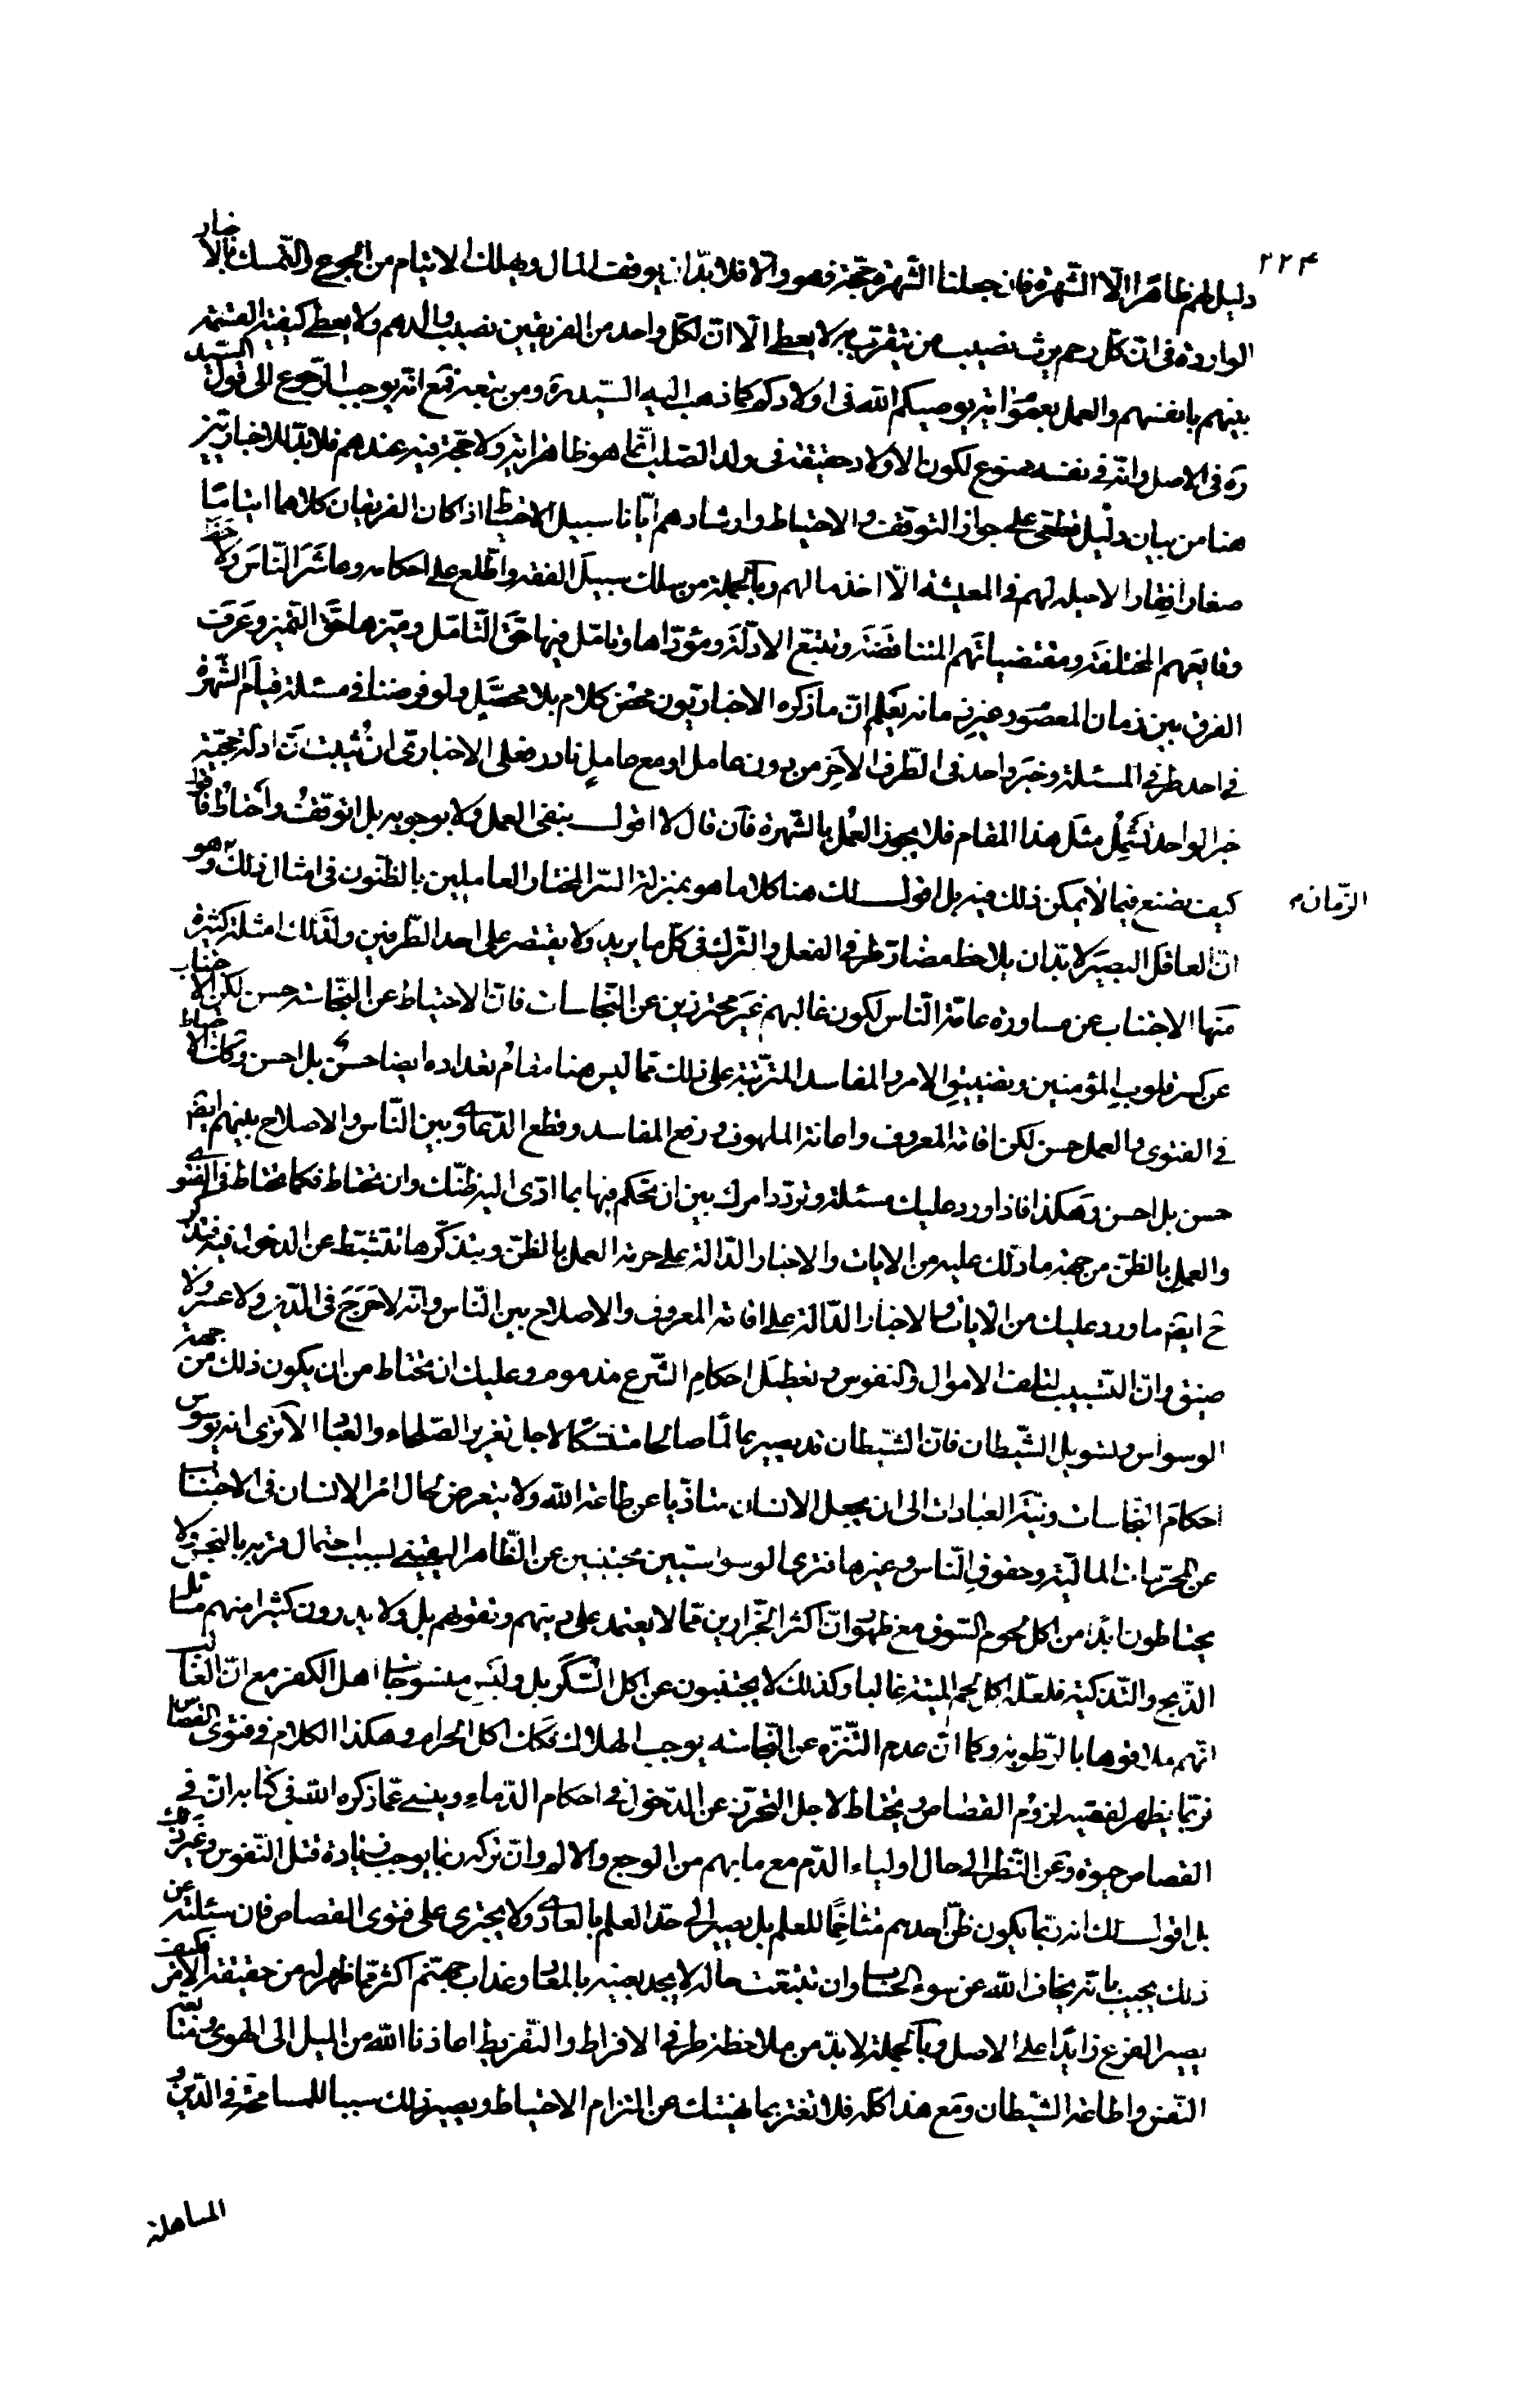 ٢٢٤
دليل لهم ظاهرا الّا الشّهرة فان جعلنا الشّهرة حجّة فهو والّا فلا بدّ ان يوقف المال ويهلك الايتام من الجوع والتّمسك بالاخبار
الواردة فى انّ كلّ رحم يرث نصيب من يتقرّب به لا يعطى الّا انّ لكلّ واحد من الفريقين نصيب والدهم ولا يعطى كيفيّة القسمة
بينهم بانفسهم والعمل بعموم اية يوصيكم الله فى اولادكم كما ذهب اليه السّيد ره ومن تبعه فمع انّه يوجب الرّجوع الى قول السّيد
ره فى الاصل وانّه فى نفسه ممنوع لكون الاولاد حقيقة فى ولد الصّلب انّما هو ظاهر اية ولا حجّة فيه عندهم فلا بدّ للاخباريّين
هنا من بيان دليل قطعىّ على جواز التوقّف والاحتياط وارشادهم ايّانا سبيل الاحتياط اذا كان الفريقان كلاهما ايتاما
صغارا فقارا لا حيلة لهم فى المعيشة الّا اخذ مالهم وبالجملة من سلك سبيل الفقه واطّلع على احكامه وعاشر النّاس ولاحظ
وقايعهم المختلفة ومقتضياتهم المتناقضة وتتبّع الادلّة ومؤدّاها وتامّل فيها حقّ التّامّل وميّزها حقّ التّميز وعرف
الفرق بين زمان المعصوم وغيره مانه يعلم انّ ما ذكره الاخباريّون محض كلام بلا محصّل ولو فرضنا فى مسئلة قيام الشّهرة
فى احد طرفى المسئلة وخبر واحد فى الطّرف الآخر من دون عامل او مع عامل نادر فعلى الاخبارىّ ان يثبت انّ ادلّة حجّية
خبر الواحد تشمل مثل هذا المقام فلا يجوز العمل بالشّهرة فان قال لا اقول بنفى العمل ولا بوجوبه بل اتوقّف واحتاط فاقول
كيف يصنع فيما لا يمكن ذلك فيه بل اقول لك هنا كلاما هو بمنزلة السّر المختار العاملين بالظّنون فى امثال ذلك الزّمان وهو
الزّمان م
انّ العاقل البصير لا بدّ ان يلاحظ مضارّ طرفى الفعل والتّرك فى كلّ ما يريد ولا يقتصر على احد الطّرفين ولذلك امثلة كثيرة
منها الاجتناب عن مساورة عامّة النّاس لكون غالبهم غير محترزين عن النّجاسات فانّ الاحتياط عن النّجاسة حسن لكن الاجتناب
عن كسر قلوب المؤمنين وتضييق الامر والمفاسد المترتّبة على ذلك ممّا ليس هنا مقام تعداده ايضا حسن بل احسن وكذا الاحتياط
فى الفتوى والعمل حسن لكن اقامة المعروف واعانة الملهوف ورفع المفاسد وقطع الدّعاوى بين النّاس والاصلاح بينهم ايضا
حسن بل احسن وهكذا فاذا ورد عليك مسئلة وتردّد امرك بين ان تحكم فيها بما ادّى اليه ظنّك وان تحتاط فكما تحتاط فى الفتوى
والعمل بالظنّ من جهة ما دلّك عليه من الايات والاخبار الدّالة على حرمة العمل بالظنّ وبتذكّرها تتثبّط عن الدخول فيه فتذكّر
ح ايضا ما ورد عليك من الايات والاخبار الدّالة على اقامة المعروف والاصلاح بين النّاس وانّه لا حرج فى الدّين ولا عسر ولا
ضيق وانّ التّسبيب لتلف الاموال والنفوس وتعطيل احكام الشّرع مذموم وعليك ان تحتاط من ان يكون ذلك من جهة
الوسواس وتسويل الشّيطان فانّ الشّيطان قد يصير عالما صالحا متنسّكا لاجل تغرير الصّلحاء والعباد الا ترى انه يوسوس
احكام النّجاسات ونيّة العبادات الى ان يجعل الانسان متاذّيا عن طاعة الله ولا يتعرض لحال امر الانسان فى الاجتناب
عن المحرّمات الماليّة وحقوق النّاس وغيرها فترى الوسواسيّين مجتنبين عن الظّاهر اليقينى بسبب احتمال قربه بالنجس ولا
يحتاطون ابدا من اكل لحوم السّوق مع ظهور انّ اكثر الجزّارين ممّا لا يعتمد على دينهم وتقويهم بل ولا يدرون كثيرا منهم مسائل
الذّبح والتّذكية فلعلّه اكل لحم الميتة غالبا وكذلك لا يجتنبون عن اكل السّكّر بل ولبس منسوجات اهل الكفر مع انّ الغالب
انّهم ملاقوها بالرّطوبة وكما انّ عدم التّنزّه عن النّجاسة يوجب الهلاك فكك اكل الحرام وهكذا الكلام فى فتوى القصاص
فربّما يظهر لفقيه لزوم القصاص ويحتاط لاجل التحرّز عن الدّخول فى احكام الدّماء وينسى عمّا ذكره الله فى كتابه انّ فى
القصاص حيوة وعن النّظر الى حال اولياء الدّم مع ما بهم من الوجع والالم وانّ تركه ربما يوجب زيادة قتل النّفوس وغير ذلك
بل اقول لك انه ربّما يكون ظنّ احدهم متاخما للعلم بل يصير الى حدّ العلم بالعادى ولا يجترى على فتوى القصاص فان سئلته عن
ذلك يجيب بانّه يخاف الله عن سوء الحساب وان تتبّعت حاله لا يجد يقينه بالمعاد وعذاب جهنّم اكثر ممّا ظهر له من حقيقة الامر فكيف
يصير الفرع زايدا على الاصل وبالجملة لا بدّ من ملاحظة طرفى الافراط والتّفريط اعاذنا الله من الميل الى الهوى ومتابعة
النّفس واطاعة الشّيطان ومع هذا كلّه فلا تغتر بما نهيتك عن التزام الاحتياط ويصير ذلك سببا للمسامحة فى الدّين و
المساهلة